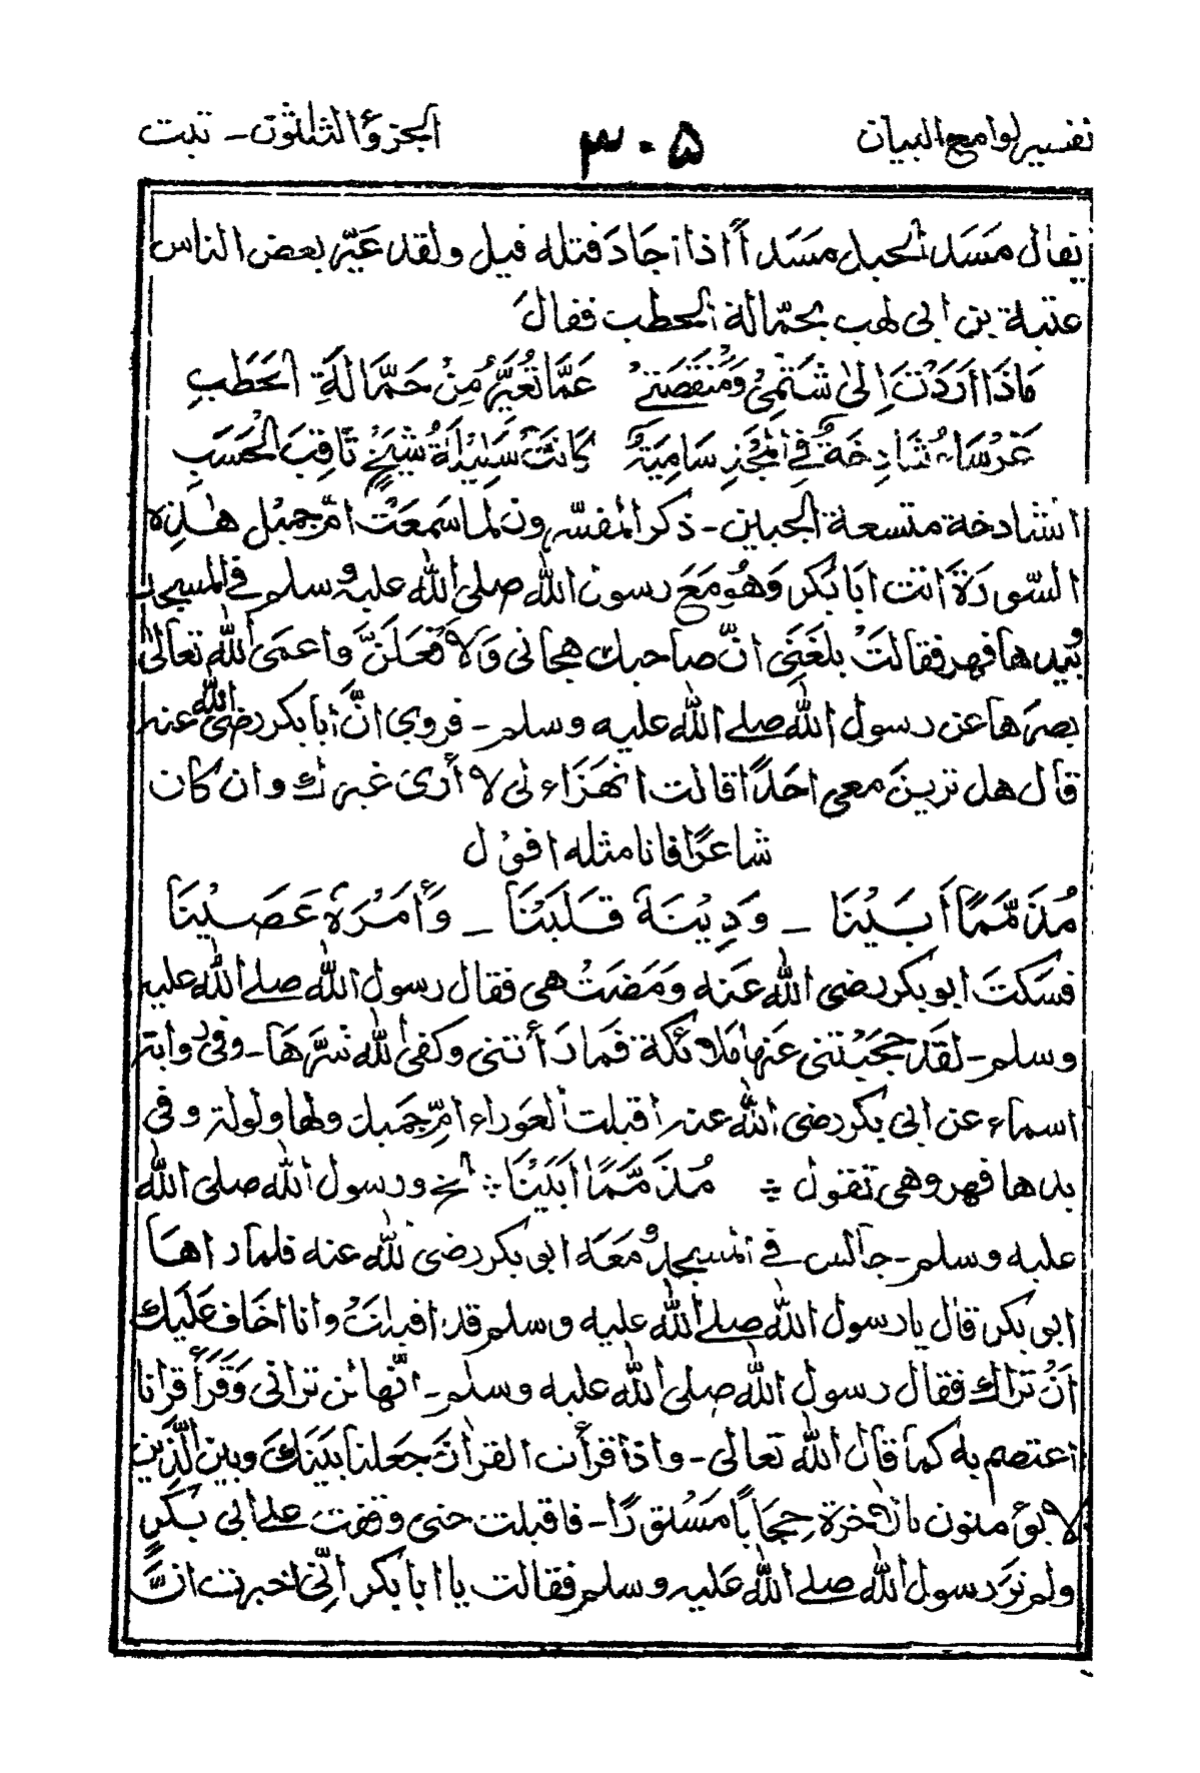 تفسير لوامع البيان
٣٠٥
الجزؤ الثلثون ـ تبت
يقال مَسَد الحبل مَسَداً اذا اجاد فتله قيل ولقد عَيّر بعض الناس
عتبة بن ابى لهب بحمّالة الحطب فقال
مَاذَا اَرَدْتَ اِلىٰ شَتْمِىْ وَمُنْقَصَتِىْ عَمَّا تُعَيِّرُ مِنْ حَمَّالَةِ الْحَطَبِ
غَرْسَاءُ شَادِخَةٌ فِى الْمَجْدِ سَامِيَةٌ كَانَتْ سَلِيْلَةَ شَيْخٍ ثَاقِبِ الْحَسَبِ
الشادخة متسعة الجبين ـ ذكر المفسّرون لما سَمعَتْ امّ جميل هٰذه
السّورَة اتت ابَا بكر وَهُو مَعَ رسول الله صلى الله عليه وسلم فى المسجد
وبيدها فهر فقالَتْ بلغَنى انّ صاحبك هجانى وَلَافعَلَنَّ واعمَى الله تعالىٰ
بصرَها عن رسول الله صلے الله عليه وسلم ـ فروى انَّ أبا بكر رضى الله عنه
قال هل ترينَ معى احَدًا قالت اتهزَاء لى لا أرىٰ غيرك وان كان
شاعرًا فانا مثله اقول
مُذَمَّمًا أَبَيْنَا ـ وَدِيْنَهٗ قَلَيْنَا ـ وَأَمْرَهٗ عَصَيْنَا
فسَكتَ ابو بكر رضى الله عَنه وَمَضَتْ هى فقال رسول الله صلے الله عليه
وسلم ـ لقَد حجبَتنى عَنها ملائكة فَما رَأتنى وكفىٰ الله شرّهَا ـ وفى روايتر
اسماء عن ابى بكر رضى الله عنه اقبلت العَوراء امّ جَميل ولها ولولة وفى
يدها فهر وهى تقول ؞ مُذَمَّمًا أَبَيْنَا ؞ الخ ورسول الله صلى الله
عليه وسلم ـ جالس فى المسجد ومَعَه ابو بكر رضى الله عنه فلما راهَا
ابو بكر قال يا رسول الله صلے الله عليه وسلم قد اقبلَتْ وانا اخاف عَلَيك
اَنْ تراك فقال رسول الله صلى الله عليه وسلم ـ انّها لن ترانى وَقَرَأَ قرانا
اعتصم به كما قال الله تعالى ـ واذا قرأت القرانَ جَعلنا بَينَكَ وبين الّذين
لا يؤمنون بالاٰخرة حِجَاباً مَسْتورًا ـ فاقبلت حتى وقفت على ابى بَكرٍ
ولم تَر رسول الله صلے الله عَليه وسلم فقالت يا ابا بَكر انِّى اخبرت انَّ